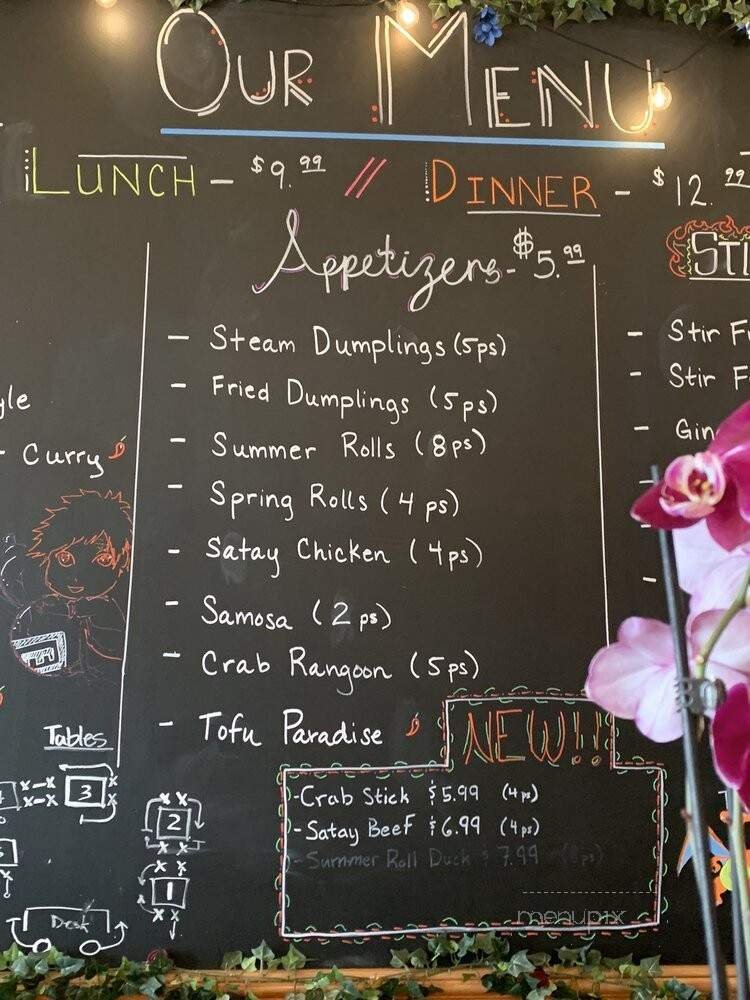 OUR MENU
LUNCH - $9.99 // DINNER - $12.99
Appetizers - $5.99
- Steam Dumplings (5ps)
- Fried Dumplings (5ps)
- Summer Rolls (8ps)
- Spring Rolls (4 ps)
- Satay Chicken (4ps)
- Samosa (2 ps)
- Crab Rangoon (5ps)
- Tofu Paradise
NEW!!
- Crab Stick $5.99 (4ps)
- Satay Beef $6.99 (4ps)
- Summer Roll Duck $7.99 (8ps)
menupix
yle
- Curry
Tables
3
2
1
Desk
STI
- Stir F
- Stir F
- Gin